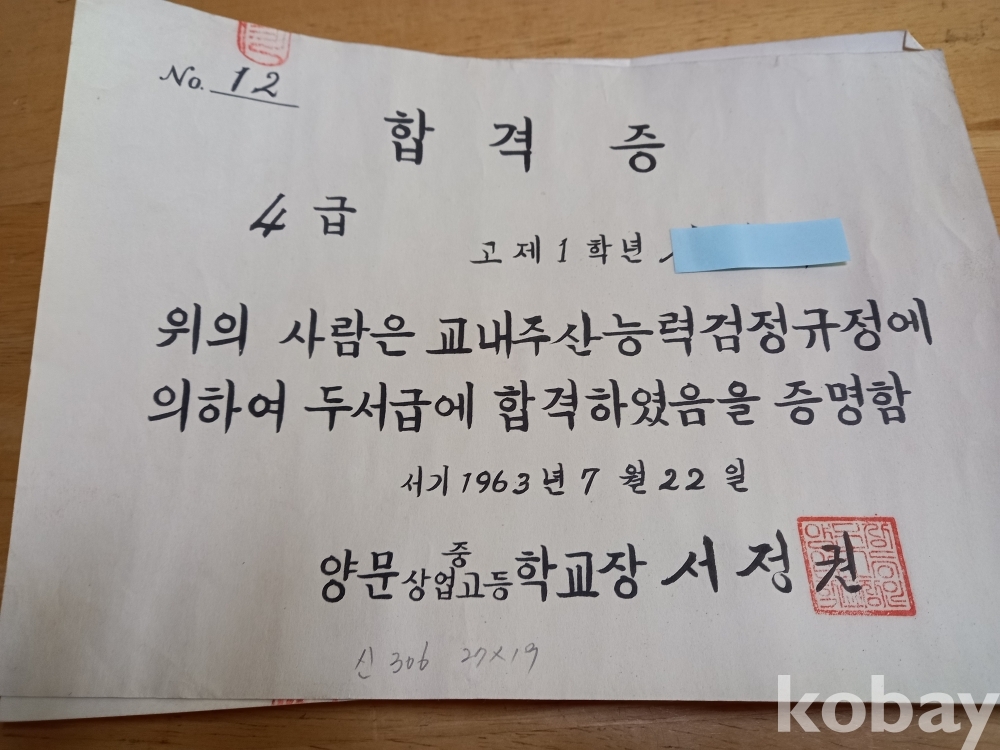 No. 12
합격증
4급
고제1학년
위의 사람은 교내주산능력검정규정에
의하여 두서급에 합격하였음을 증명함
서기 1963년 7월 22일
양문중상업고등학교장 서정권
신 306 27×19
kobay